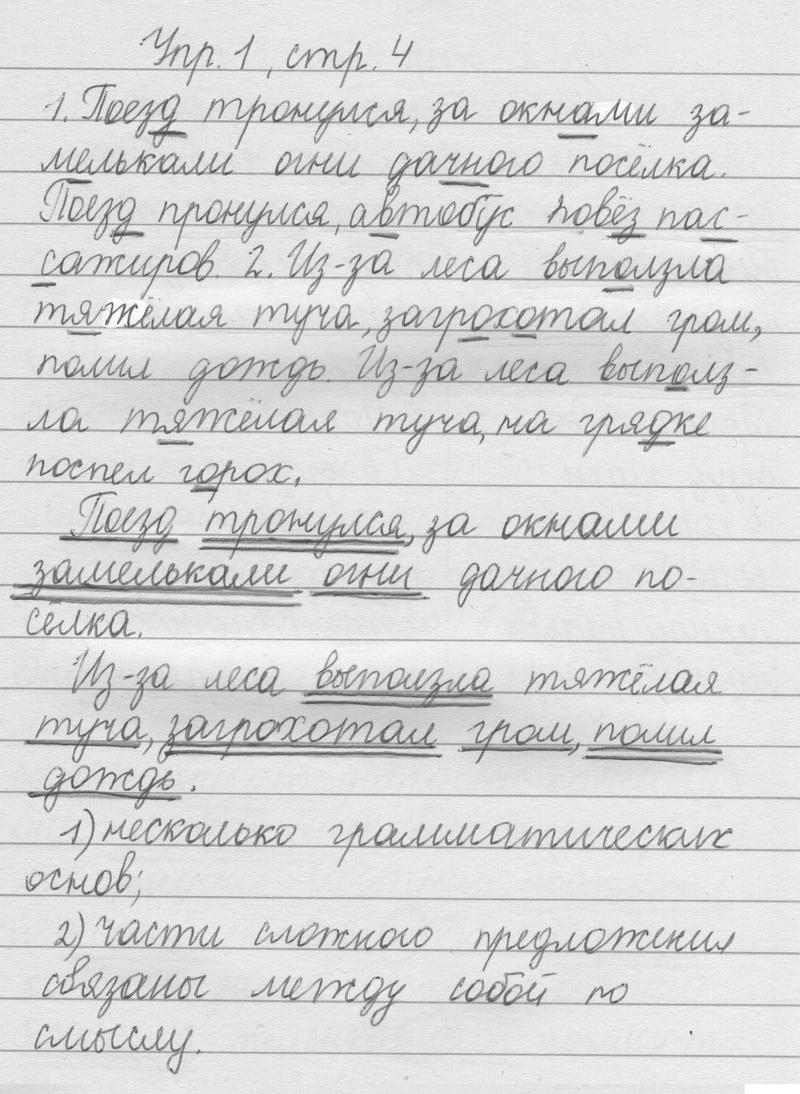 Упр. 1, стр. 4
1. Поезд тронулся, за окнами за-
мелькали огни дачного посёлка.
Поезд тронулся, автобус повёз пас-
сажиров. 2. Из-за леса выползла
тяжёлая туча, загрохотал гром,
полил дождь. Из-за леса выполз-
ла тяжёлая туча, на грядке
поспел горох.
Поезд тронулся, за окнами
замелькали огни дачного по-
сёлка.
Из-за леса выползла тяжёлая
туча, загрохотал гром, полил
дождь.
1) несколько грамматических
основ;
2) части сложного предложения
связаны между собой по
смыслу.